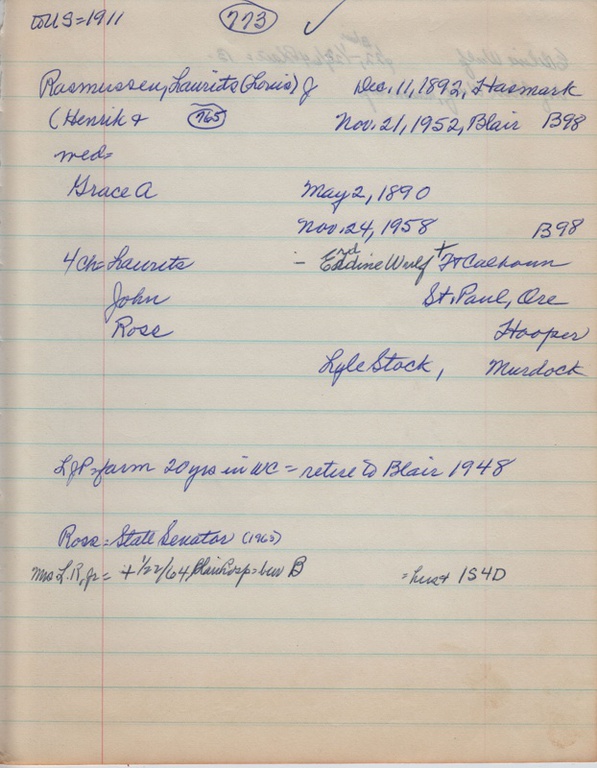 to US=1911 773 ✓
Rasmussen, Laurits (Louis) J Dec. 11, 1892, Hasmark
(Henrik + 765 Nov. 21, 1952, Blair B98
med=
Grace A May 2, 1890
Nov. 24, 1958 B98
4 ch= Laurits - Erdine Wulf + Ft Calhoun
John St. Paul, Ore
Ross Hooper
Lyle Stock, Murdock
farm 20 yrs in WC = retire to Blair 1948
Ross= State Senator (1965)
Mrs L.R, Jr= + 1/22/64 Blair Hosp= bur B = hus + 1S4D